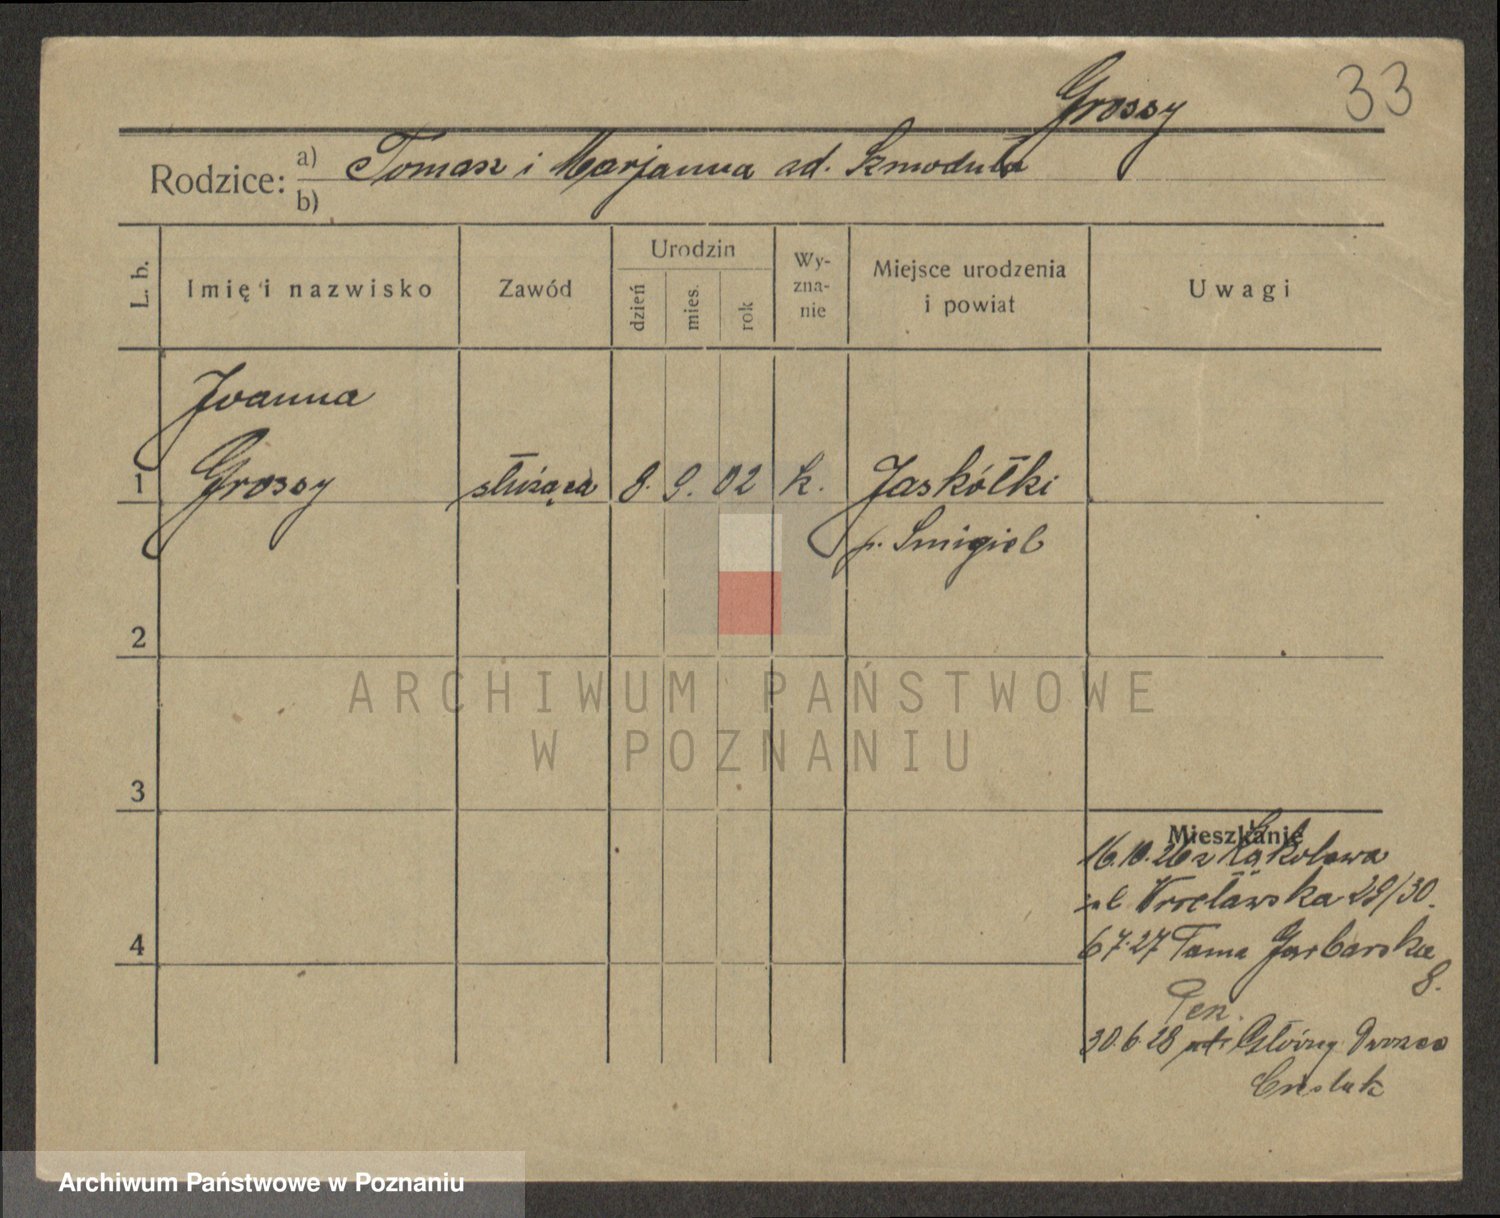 Grossy 33
Rodzice: a) Tomasz i Marjanna zd. Szmoduła
b)
L. b. Imię i nazwisko Zawód Urodzin dzień mies. rok Wyznanie Miejsce urodzenia i powiat Uwagi
Joanna
1 Grossy służąca 8. 9. 02 k. Jaskółki
p. Smigiel
2
ARCHIWUM PAŃSTWOWE
W POZNANIU
3
Mieszkanie
16.10.26 z Kąkolewa
ul Wrocławska 29/30.
6 7.27 Tama Garbarska
8.
30.6.28 Główny Dworzec
Archiwum Państwowe w Poznaniu
4